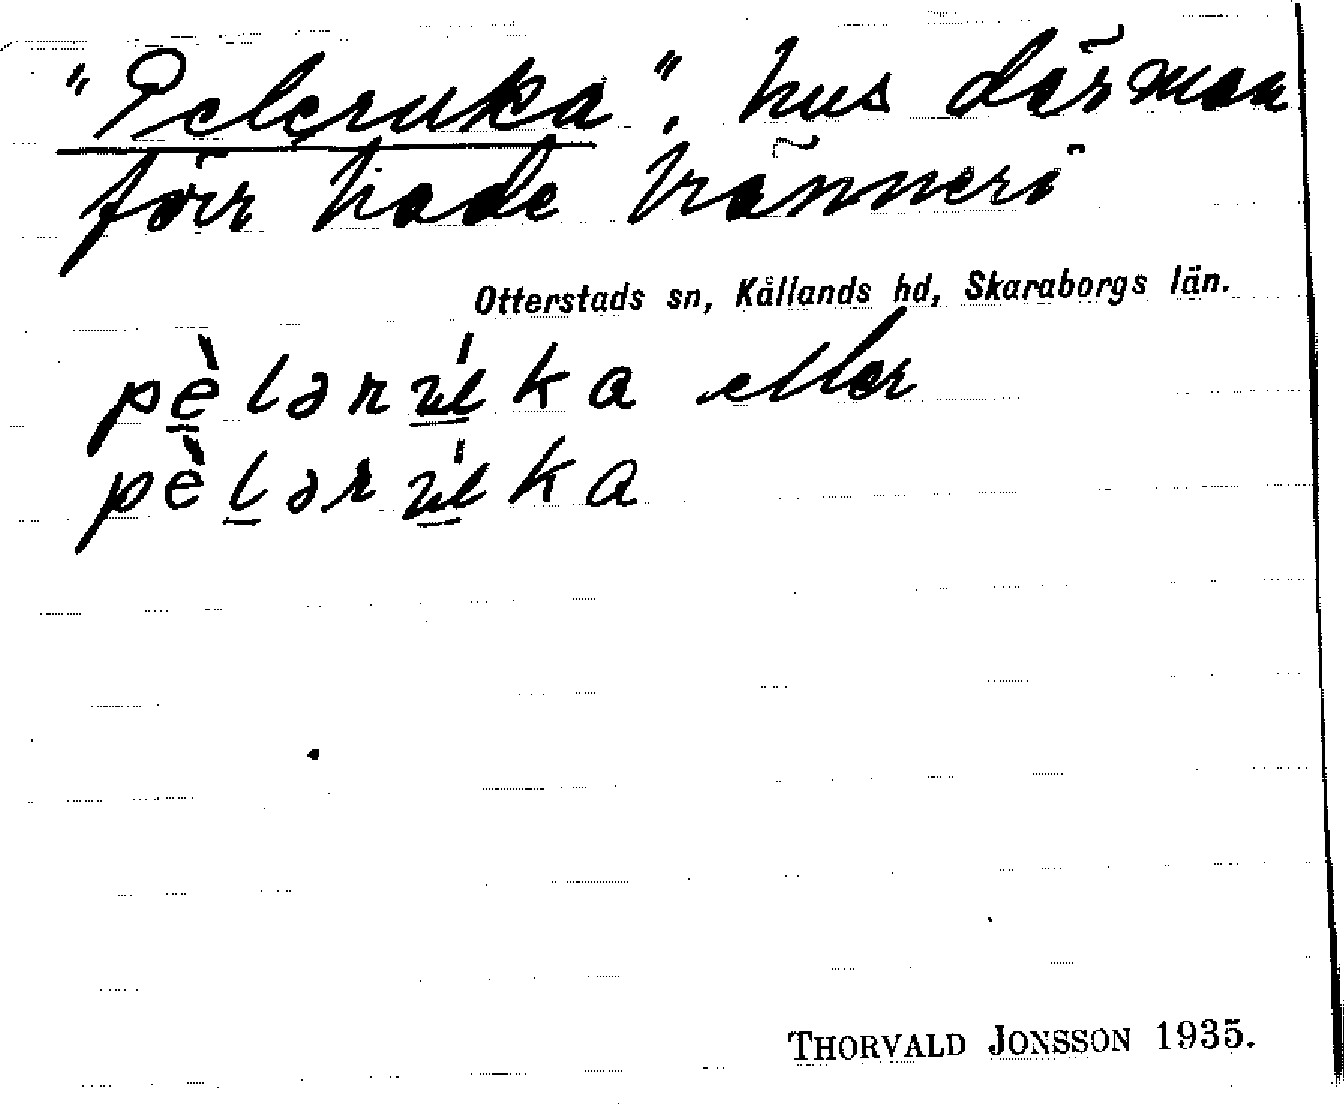 "Peleruka", hus där man
förr hade bränneri
Otterstads sn, Kållands hd, Skaraborgs län.
eller
THORVALD JONSSON 1935.